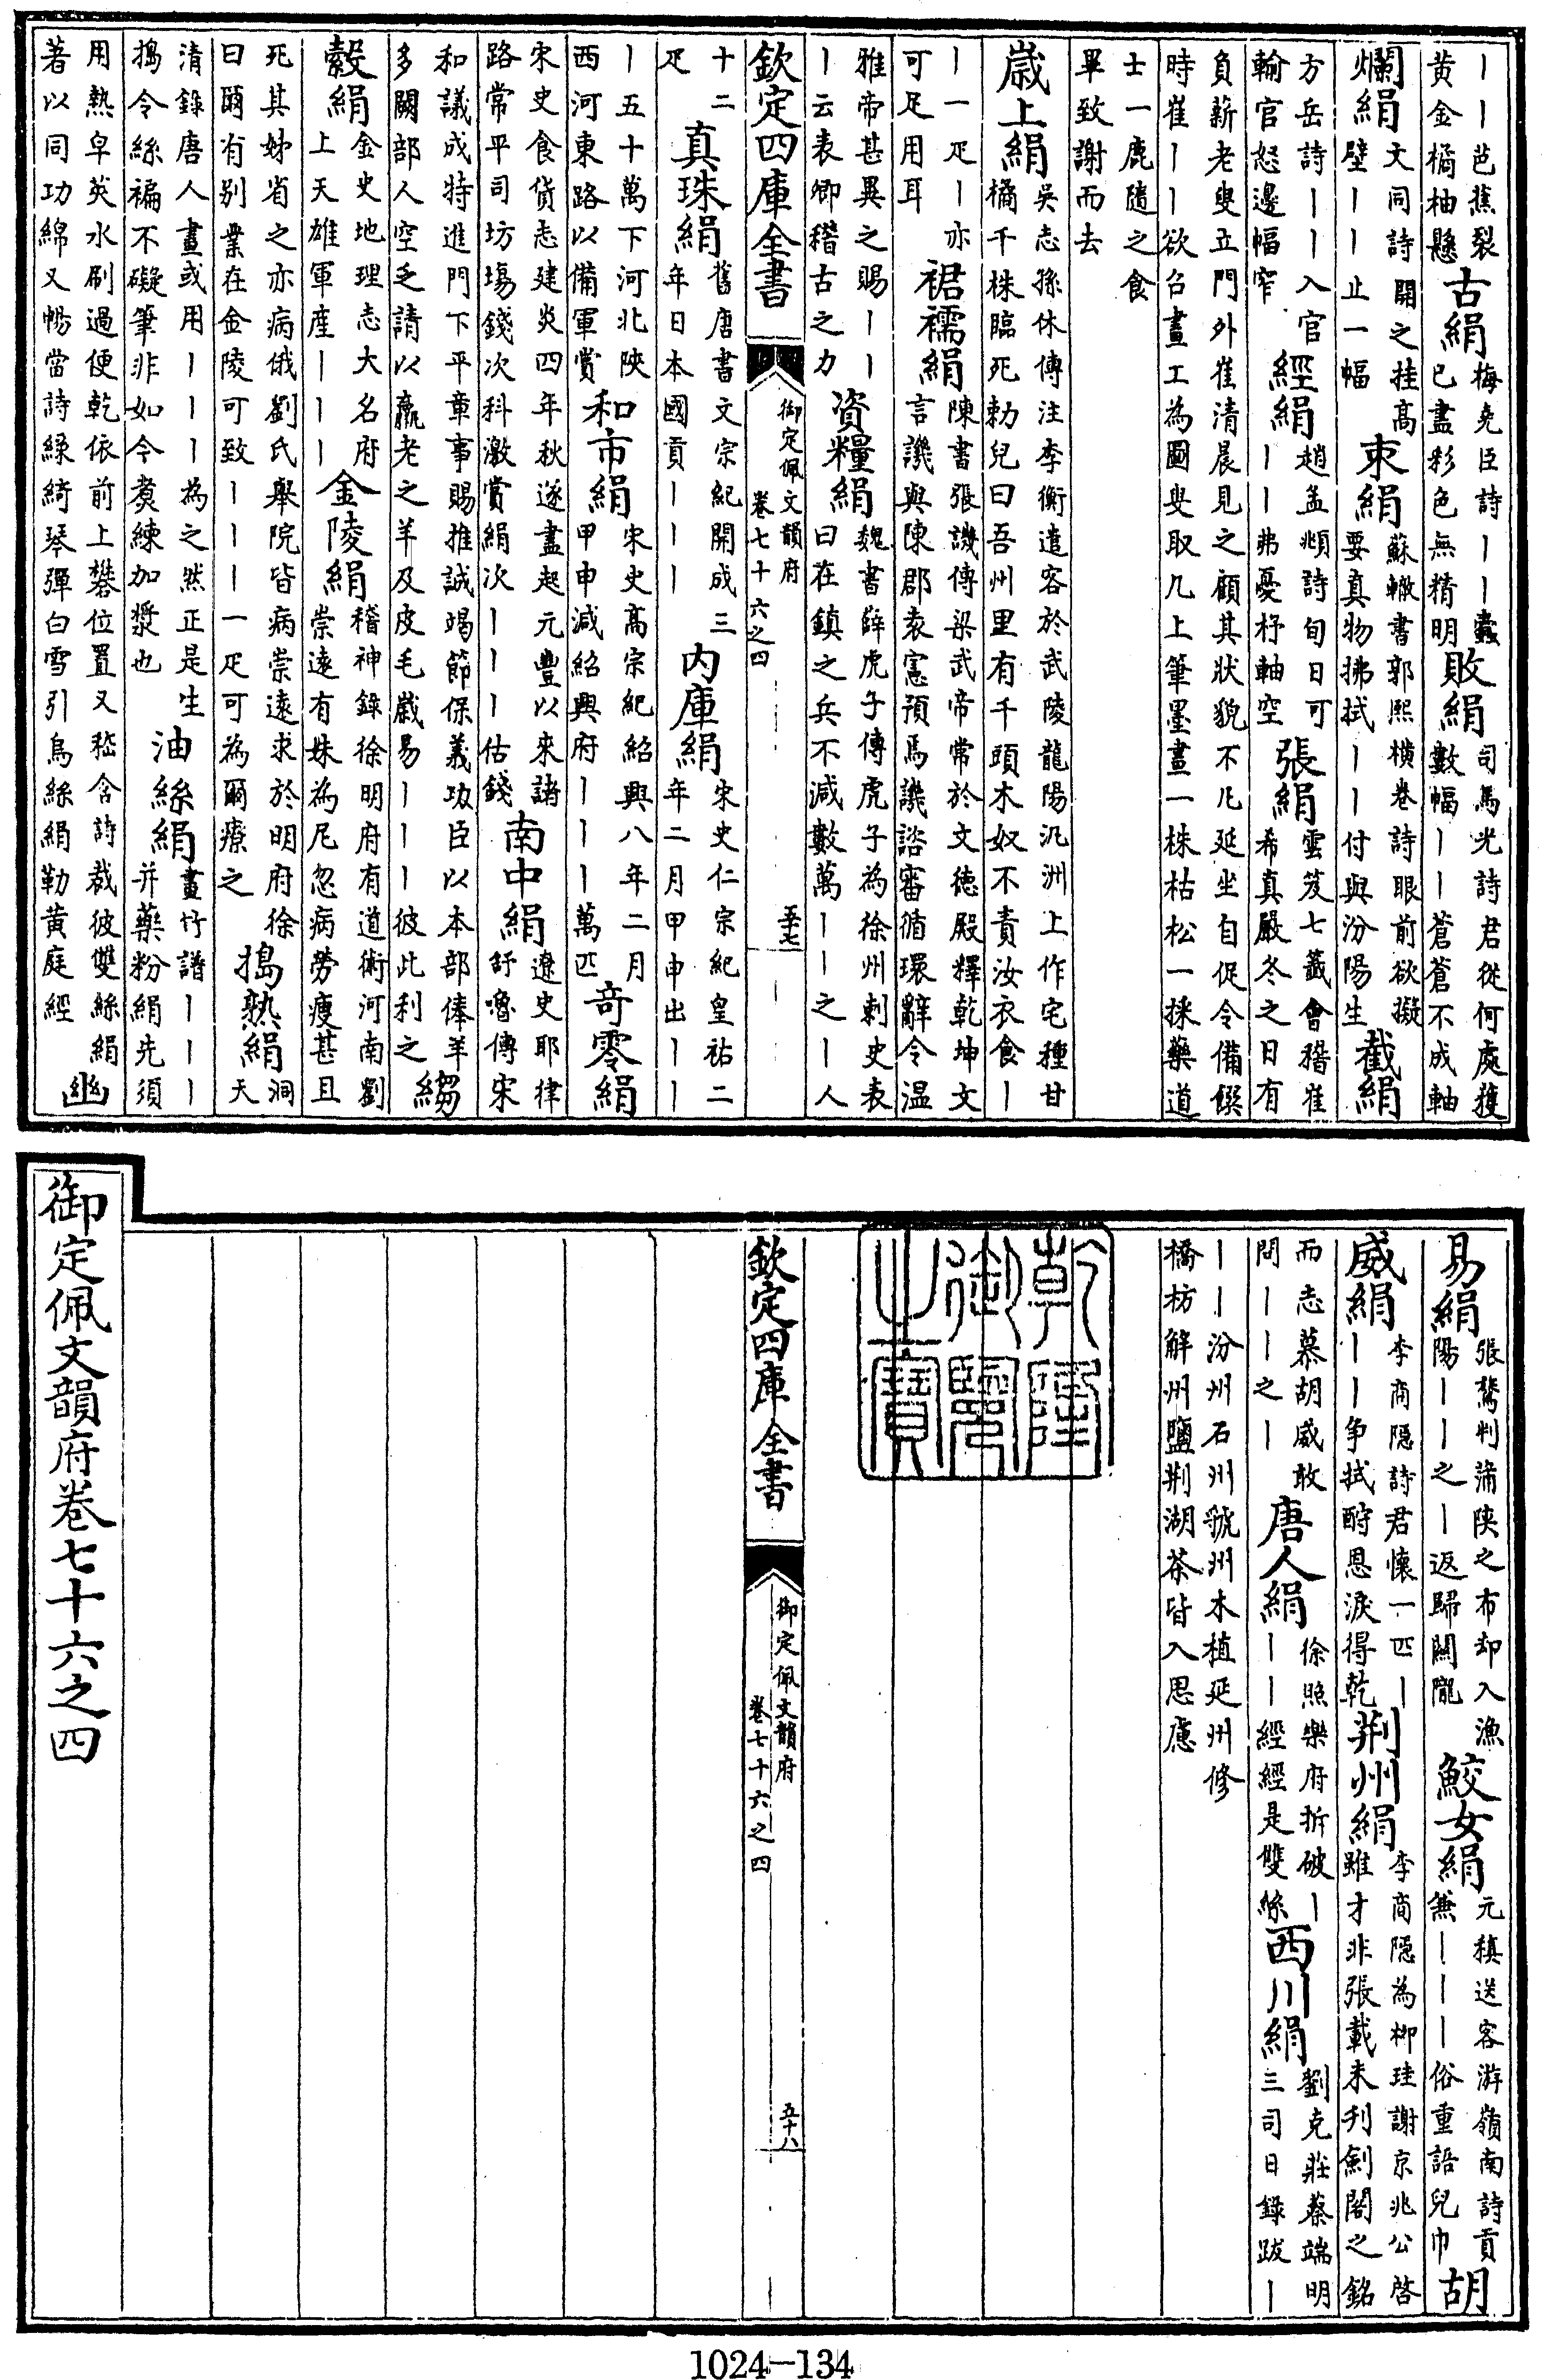 ｜｜芭蕉裂
黄金橘柚懸
古絹
梅堯臣詩｜｜蠧
已盡彩色無精明
敗絹
司馬光詩君從何處獲
數幅｜｜蒼蒼不成軸
爛絹
文同詩開之挂髙
壁｜｜止一幅
束絹
蘇轍書郭熙橫卷詩眼前欲擬
要真物拂拭｜｜付與汾陽生
截絹
方岳詩｜｜入官
輸官怒邊幅窄
經絹
趙孟頫詩旬日可
｜｜弗憂杼軸空
張絹
雲笈七籖會稽崔
希真嚴冬之日有
負薪老叟立門外崔清晨見之顧其狀貌不凡延坐自促令備饌
時崔｜｜欲召畫工為圖叟取几上筆墨畫一株枯松一採藥道
士一鹿隨之食
畢致謝而去
嵗上絹
吳志孫休傳注李衡遣客於武陵龍陽汎洲上作宅種甘
橘千株臨死勅兒曰吾州里有千頭木奴不責汝衣食｜
｜一疋｜亦
可足用耳
裙襦絹
陳書張譏傳梁武帝常於文徳殿釋乾坤文
言譏與陳郡袁憲預焉譏諮審循環辭令温
雅帝甚異之賜｜｜
｜云表卿稽古之力
資糧絹
魏書薛虎子傳虎子為徐州刺史表
曰在鎮之兵不減數萬｜｜之｜人
欽定四庫全書
御定佩文韻府
卷七十六之四
五十七
十二
疋
真珠絹
舊唐書文宗紀開成三
年日本國貢｜｜｜
内庫絹
宋史仁宗紀皇祐二
年二月甲申出｜｜
｜五十萬下河北陜
西河東路以備軍賞
和市絹
宋史髙宗紀紹興八年二月
甲申減紹興府｜｜｜萬匹
竒零絹
宋史食貨志建炎四年秋遂盡起元豐以來諸
路常平司坊塲錢次科激賞絹次｜｜｜估錢
南中絹
遼史耶律
舒嚕傳宋
和議成特進門下平章事賜推誠竭節保義功臣以本部俸羊
多闕部人空乏請以羸老之羊及皮毛嵗易｜｜｜彼此利之
縐
縠絹
金史地理志大名府
上天雄軍産｜｜｜
金陵絹
稽神錄徐明府有道術河南劉
崇逺有妹為尼忽病勞瘦甚且
死其姊省之亦病俄劉氏舉院皆病崇逺求於明府徐
曰爾有别業在金陵可致｜｜｜一疋可為爾療之
搗熟絹
洞
天
清錄唐人畫或用｜｜｜為之然正是生
搗令絲褊不礙筆非如今煑練加漿也
油絲絹
畫竹譜｜｜｜
并藥粉絹先須
用熱皁莢水刷過便乾依前上礬位置又嵇含詩裁彼雙絲絹
著以同功綿又暢當詩緑綺琴彈白雪引烏絲絹勒黄庭經
幽
易絹
張鷟判蒲陜之布却入漁
陽｜｜之｜返歸關隴
鮫女絹
元稹送客游嶺南詩貢
兼｜｜｜俗重語兒巾
胡
威絹
李商隱詩君懐一匹｜
｜｜争拭酧恩淚得乾
荆州絹
李商隱為柳珪謝京兆公啓
雖才非張載未刋劍閣之銘
而志慕胡威敢
問｜｜之｜
唐人絹
徐照樂府拆破｜
｜｜經經是雙絲
西川絹
劉克莊蔡端明
三司日録跋｜
｜｜汾州石州虢州木植延州修
橋枋解州鹽荆湖茶皆入思慮
乾隆御覽之寶
欽定四庫全書
御定佩文韻府
卷七十六之四
五十八
御定佩文韻府卷七十六之四
1024-134